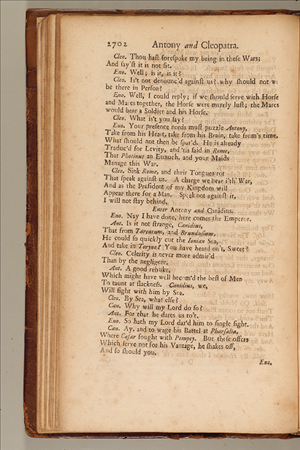 2702 Antony and Cleopatra.
Cleo. Thou hast forespoke my being in these Wars;
And say'st it is not fit.
Eno. Well; is it, is it?
Cleo. Is't not denounc'd against us? why should not we
be there in Person?
Eno. Well, I could reply; if we should serve with Horse
and Mares together, the Horse were merely lost; the Mares
would bear a Soldier and his Horse.
Cleo. What is't you say?
Eno. Your presence needs must puzzle Antony,
Take from his Heart, take from his Brain, take from's time,
What should not then be spar'd. He is already
Traduc'd for Levity, and 'tis said in Rome,
That Photinus an Eunuch, and your Maids
Manage this War.
Cleo. Sink Rome, and their Tongues rot
That speak against us. A charge we bear i'th' War,
And as the President of my Kingdom will
Appear there for a Man. Speak not against it,
I will not stay behind.
Enter Antony and Canidius.
Eno. Nay I have done, here comes the Emperor.
Ant. Is it not strange, Canidius,
That from Tarentum, and Brundusium,
He could so quickly cut the Ionian Sea,
And take in Toryne? You have heard on't, Sweet?
Cleo. Celerity is never more admir'd
Than by the negligent.
Ant. A good rebuke,
Which might have well becom'd the best of Men
To taunt at slackness. Canidius, we,
Will fight with him by Sea.
Cleo. By Sea, what else?
Can. Why will my Lord do so?
Ant. For that he dares us to't.
Eno. So hath my Lord dar'd him to single fight.
Can. Ay, and to wage his Battel at Pharsalia,
Where Cæsar fought with Pompey. But these offers
Which serve not for his Vantage, he shakes off,
And so should you.
Eno.